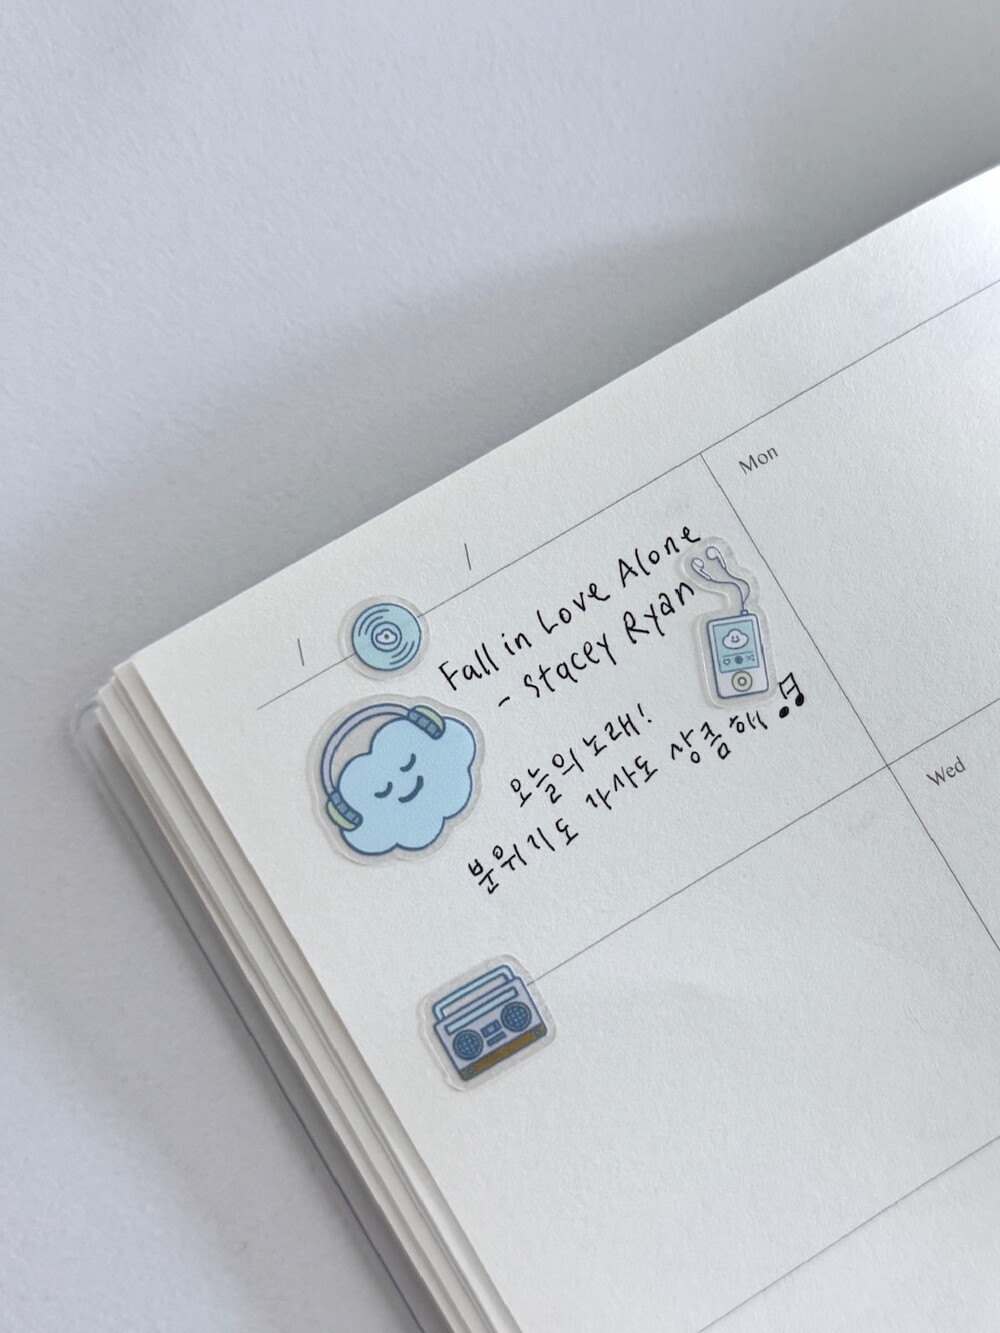 Mon
Fall in Love Alone
- Stacey Ryan
오늘의 노래!
분위기도 가사도 상큼해 ♫
Wed